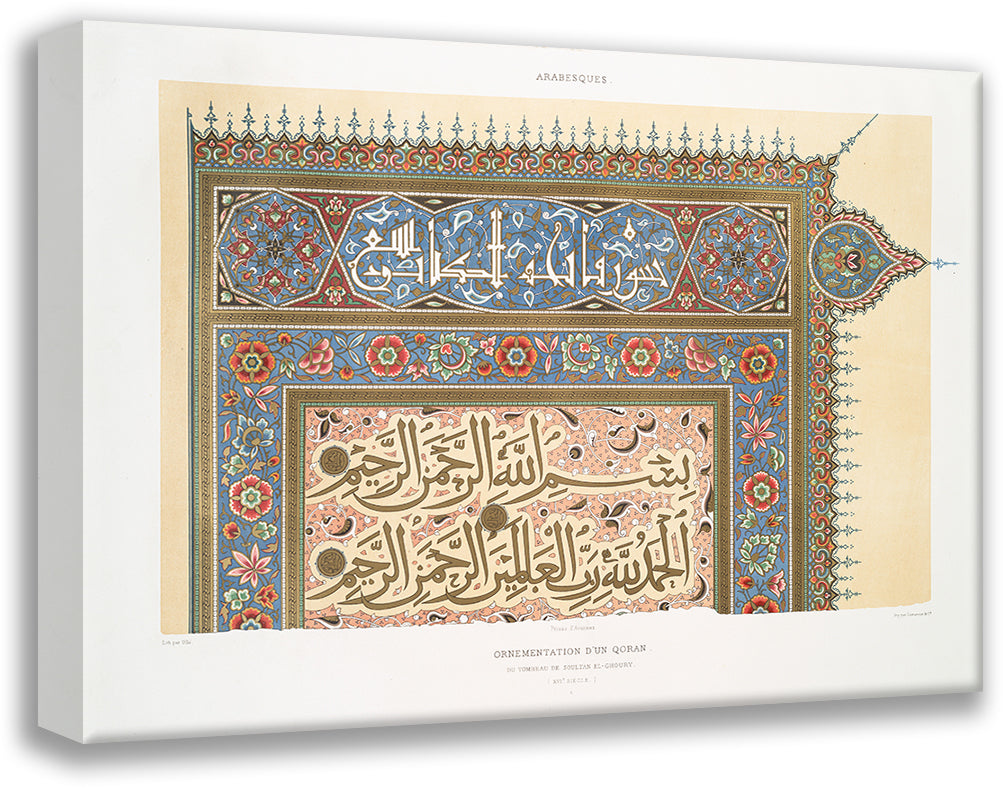 ARABESQUES.
سورة فاتحة الكتاب
بِسْمِ اللَّهِ الرَّحْمَٰنِ الرَّحِيمِ
الْحَمْدُ لِلَّهِ رَبِّ الْعَالَمِينَ الرَّحْمَٰنِ الرَّحِيمِ
Prisse d'Avennes
ORNEMENTATION D'UN QORAN.
DU TOMBEAU DE SOULTAN EL-GHOURY.
(XVIe SIÈCLE.)